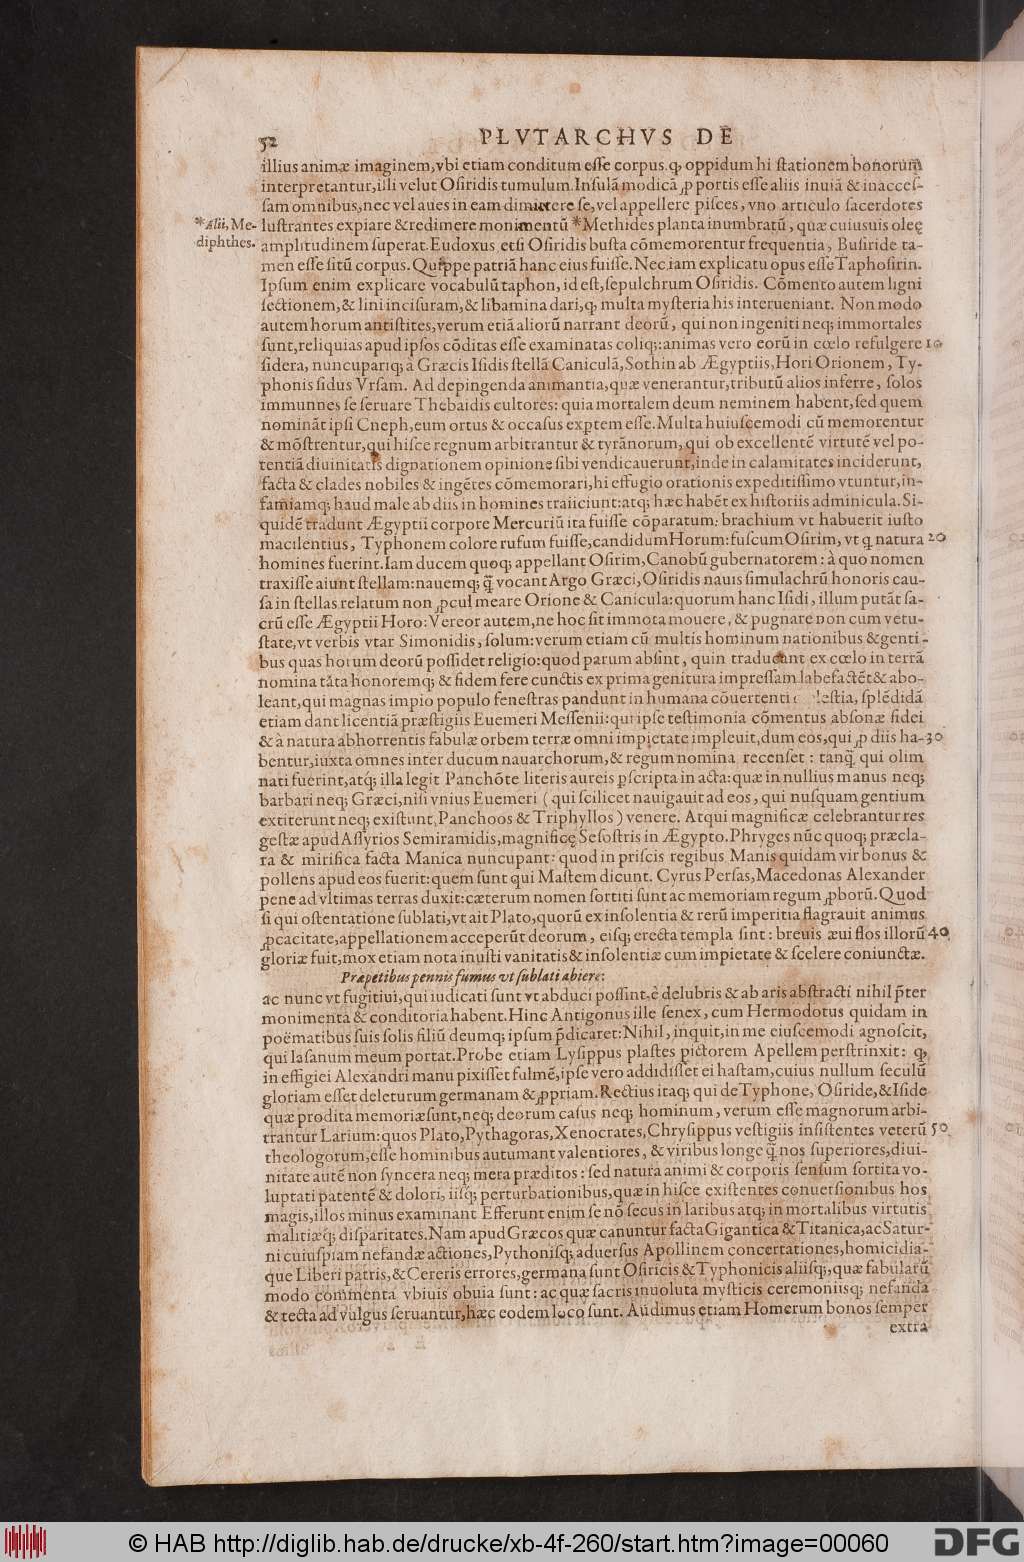 52 PLVTARCHVS DE
illius animæ imaginem, vbi etiam conditum esse corpus. ꝙ oppidum hi stationem bonorum
interpretantur, illi velut Osiridis tumulum. Insulã modicã ꝓ portis esse aliis inuiã & inacces-
sam omnibus, nec vel aues in eam dimittere se, vel appellere pisces, vno articulo sacerdotes
*Alii, Me- lustrantes expiare & redimere monimentũ *Methides planta inumbratũ, quæ cuiusuis oleę
diphthes. amplitudinem superat. Eudoxus etsi Osiridis busta cõmemorentur frequentia, Busiride ta-
men esse sitũ corpus. Quippe patriã hanc eius fuisse. Nec iam explicatu opus esse Taphosirin.
Ipsum enim explicare vocabulũ taphon, id est, sepulchrum Osiridis. Cõmento autem ligni
sectionem, & lini incisuram, & libamina dari, ꝙ multa mysteria his interueniant. Non modo
autem horum antistites, verum etiã aliorũ narrant deorũ, qui non ingeniti neq; immortales
sunt, reliquias apud ipsos cõditas esse examinatas coliq;: animas vero eorũ in cœlo refulgere 10
sidera, nuncupariq; à Græcis Isidis stellã Caniculã, Sothin ab Ægyptiis, Hori Orionem, Ty-
phonis sidus Vrsam. Ad depingenda animantia, quæ venerantur, tributũ alios inferre, solos
immunnes se seruare Thebaidis cultores: quia mortalem deum neminem habent, sed quem
nominãt ipsi Cneph, eum ortus & occasus exptem esse. Multa huiuscemodi cũ memorentur
& mõstrentur, qui hisce regnum arbitrantur & tyrãnorum, qui ob excellentẽ virtutẽ vel po-
tentiã diuinitatis dignationem opinione sibi vendicauerunt, inde in calamitates inciderunt,
facta & clades nobiles & ingẽtes cõmemorari, hi effugio orationis expeditissimo vtuntur, in-
famiamq; haud male ab diis in homines traiiciunt: atq; hæc habẽt ex historiis adminicula. Si-
quidẽ tradunt Ægyptii corpore Mercuriũ ita fuisse cõparatum: brachium vt habuerit iusto
macilentius, Typhonem colore rufum fuisse, candidum Horum: fuscum Osirim, vt q natura 20
homines fuerint. Iam ducem quoq; appellant Osirim, Canobũ gubernatorem: à quo nomen
traxisse aiunt stellam: nauemq; q̃ vocant Argo Græci, Osiridis nauis simulachrũ honoris cau-
sa in stellas relatum non ꝓcul meare Orione & Canicula: quorum hanc Isidi, illum putãt sa-
crũ esse Ægyptii Horo: Vereor autem, ne hoc sit immota mouere, & pugnare non cum vetu-
state, vt verbis vtar Simonidis, solum: verum etiam cũ multis hominum nationibus & genti-
bus quas horum deorũ possidet religio: quod parum absint, quin traducant ex cœlo in terrã
nomina tãta honoremq; & fidem fere cunctis ex prima genitura impressam labefactẽt & abo-
leant, qui magnas impio populo fenestras pandunt in humana cõuertenti lestia, splẽdidã
etiam dant licentiã præstigiis Euemeri Messenii: qui ipse testimonia cõmentus absonæ fidei
& à natura abhorrentis fabulæ orbem terræ omni impietate impleuit, dum eos, qui ꝓ diis ha- 30
bentur, iuxta omnes inter ducum nauarchorum, & regum nomina recenset: tanq̃ qui olim
nati fuerint, atq́; illa legit Panchõte literis aureis pscripta in acta: quæ in nullius manus neq;
barbari neq; Græci, nisi vnius Euemeri (qui scilicet nauigauit ad eos, qui nusquam gentium
extiterunt neq; existunt, Panchoos & Triphyllos) venere. Atqui magnificæ celebrantur res
gestæ apud Assyrios Semiramidis, magnificę Sesostris in Ægypto. Phryges nũc quoq; præcla-
ra & mirifica facta Manica nuncupant: quod in priscis regibus Manis quidam vir bonus &
pollens apud eos fuerit: quem sunt qui Mastem dicunt. Cyrus Persas, Macedonas Alexander
pene ad vltimas terras duxit: cæterum nomen sortiti sunt ac memoriam regum ꝓborũ. Quod
si qui ostentatione sublati, vt ait Plato, quorũ ex insolentia & rerũ imperitia flagrauit animus
ꝓcacitate, appellationem acceperũt deorum, eisq; erecta templa sint: breuis æui flos illorũ 40
gloriæ fuit, mox etiam nota inusti vanitatis & insolentiæ cum impietate & scelere coniunctæ.
Præpetibus pennis fumus vt sublati abiere:
ac nunc vt fugitiui, qui iudicati sunt vt abduci possint. è delubris & ab aris abstracti nihil p̃ter
monimenta & conditoria habent. Hinc Antigonus ille senex, cum Hermodotus quidam in
poëmatibus suis solis filiũ deumq; ipsum p̃dicaret: Nihil, inquit, in me eiuscemodi agnoscit,
qui lasanum meum portat. Probe etiam Lysippus plastes pictorem Apellem perstrinxit: ꝙ
in effigiei Alexandri manu pixisset fulmẽ, ipse vero addidisset ei hastam, cuius nullum seculũ
gloriam esset deleturum germanam & ꝓpriam. Rectius itaq; qui de Typhone, Osiride, & Iside
quæ prodita memoriæ sunt, neq; deorum casus neq; hominum, verum esse magnorum arbi-
trantur Larium: quos Plato, Pythagoras, Xenocrates, Chrysippus vestigiis insistentes veterũ 50
theologorum, esse hominibus autumant valentiores, & viribus longe q̃ nos superiores, diui-
nitate autẽ non syncera neq; mera præditos: sed natura animi & corporis sensum sortita vo-
luptati patentẽ & dolori, iisq́; perturbationibus, quæ in hisce existentes conuersionibus hos
magis, illos minus examinant Efferunt enim se nõ secus in laribus atq; in mortalibus virtutis
malitiæq́; disparitates. Nam apud Græcos quæ canuntur facta Gigantica & Titanica, ac Satur-
ni cuiuspiam nefandæ actiones, Pythonisq; aduersus Apollinem concertationes, homicidia-
que Liberi patris, & Cereris errores, germana sunt Osiricis & Typhonicis aliisq;, quæ fabularũ
modo commenta vbiuis obuia sunt: ac quæ sacris inuoluta mysticis ceremoniisq; nefanda
& tecta ad vulgus seruantur, hæc eodem loco sunt. Audimus etiam Homerum bonos semper
extra
© HAB http://diglib.hab.de/drucke/xb-4f-260/start.htm?image=00060
DFG